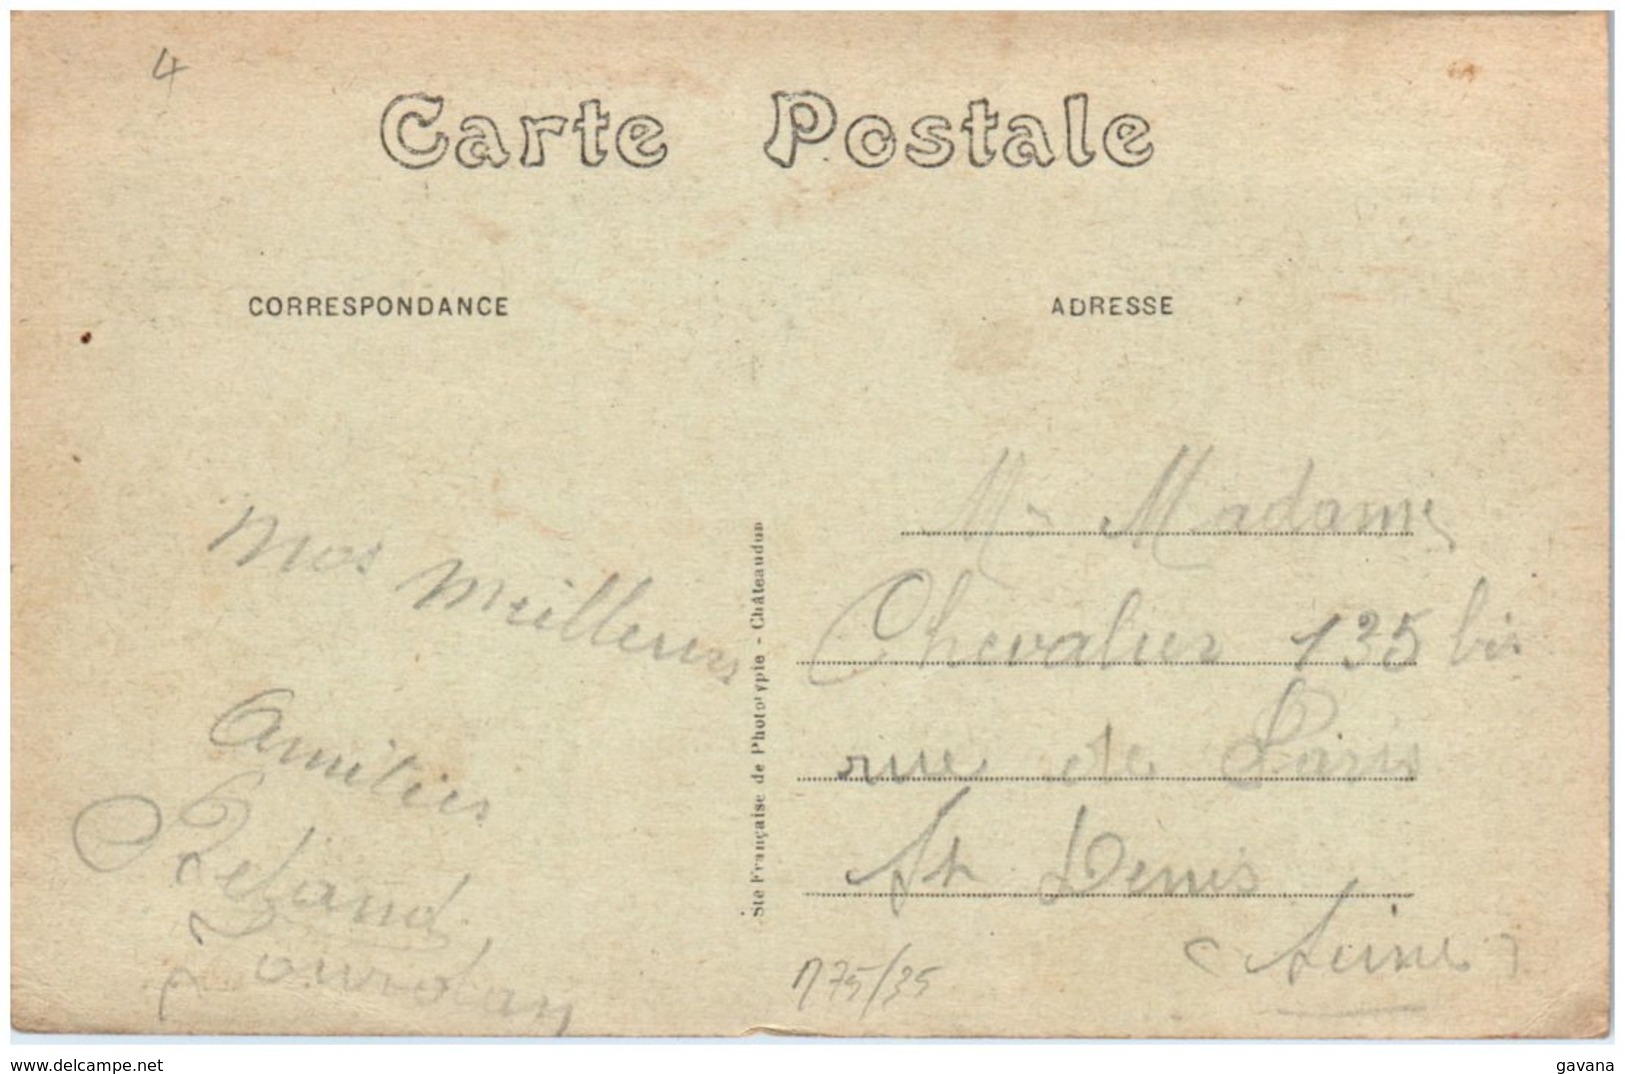 4
Carte Postale
CORRESPONDANCE
ADRESSE
Mos Meilleurs
Amitiés
Jourdan
Ste Française de Phototypie - Châteaudun
Mr Madame
Chevalier 135 bis
rue de Paris
St Denis
(Seine)
75/35
www.delcampe.net
gavana